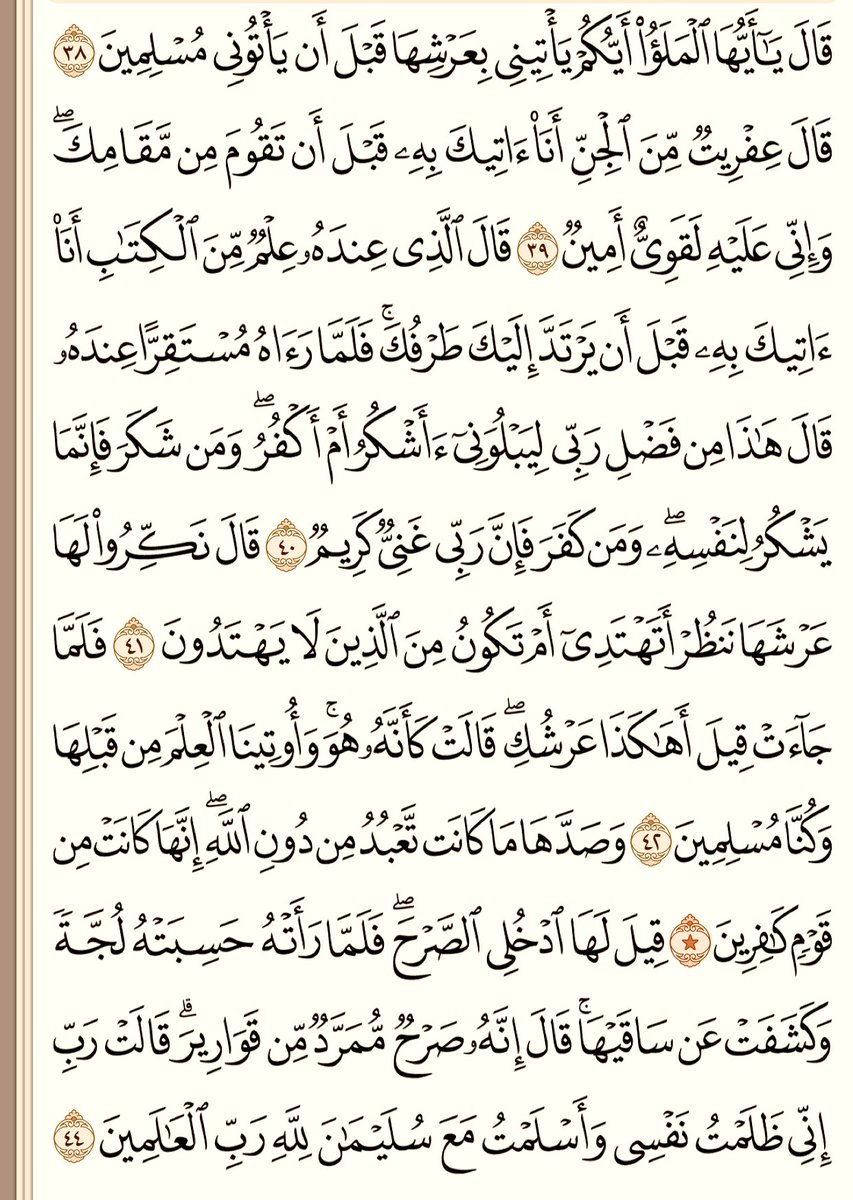 قَالَ يَـٰٓأَيُّهَا ٱلْمَلَؤُا۟ أَيُّكُمْ يَأْتِينِى بِعَرْشِهَا قَبْلَ أَن يَأْتُونِى مُسْلِمِينَ ٣٨
قَالَ عِفْرِيتٌ مِّنَ ٱلْجِنِّ أَنَا۠ ءَاتِيكَ بِهِۦ قَبْلَ أَن تَقُومَ مِن مَّقَامِكَ ۖ
وَإِنِّى عَلَيْهِ لَقَوِىٌّ أَمِينٌ ٣٩ قَالَ ٱلَّذِى عِندَهُۥ عِلْمٌ مِّنَ ٱلْكِتَـٰبِ أَنَا۠
ءَاتِيكَ بِهِۦ قَبْلَ أَن يَرْتَدَّ إِلَيْكَ طَرْفُكَ ۚ فَلَمَّا رَءَاهُ مُسْتَقِرًّا عِندَهُۥ
قَالَ هَـٰذَا مِن فَضْلِ رَبِّى لِيَبْلُوَنِىٓ ءَأَشْكُرُ أَمْ أَكْفُرُ ۖ وَمَن شَكَرَ فَإِنَّمَا
يَشْكُرُ لِنَفْسِهِۦ ۖ وَمَن كَفَرَ فَإِنَّ رَبِّى غَنِىٌّ كَرِيمٌ ٤٠ قَالَ نَكِّرُوا۟ لَهَا
عَرْشَهَا نَنظُرْ أَتَهْتَدِىٓ أَمْ تَكُونُ مِنَ ٱلَّذِينَ لَا يَهْتَدُونَ ٤١ فَلَمَّا
جَآءَتْ قِيلَ أَهَـٰكَذَا عَرْشُكِ ۖ قَالَتْ كَأَنَّهُۥ هُوَ ۚ وَأُوتِينَا ٱلْعِلْمَ مِن قَبْلِهَا
وَكُنَّا مُسْلِمِينَ ٤٢ وَصَدَّهَا مَا كَانَت تَّعْبُدُ مِن دُونِ ٱللَّهِ ۖ إِنَّهَا كَانَتْ مِن
قَوْمٍ كَـٰفِرِينَ ★ قِيلَ لَهَا ٱدْخُلِى ٱلصَّرْحَ ۖ فَلَمَّا رَأَتْهُ حَسِبَتْهُ لُجَّةً
وَكَشَفَتْ عَن سَاقَيْهَا ۚ قَالَ إِنَّهُۥ صَرْحٌ مُّمَرَّدٌ مِّن قَوَارِيرَ ۗ قَالَتْ رَبِّ
إِنِّى ظَلَمْتُ نَفْسِى وَأَسْلَمْتُ مَعَ سُلَيْمَـٰنَ لِلَّهِ رَبِّ ٱلْعَـٰلَمِينَ ٤٤